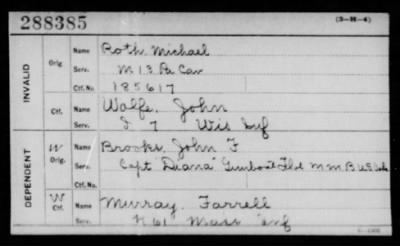 288385 (3-H-4)
INVALID
Orig. Name Roth Michael
Serv. M 13 Pa Cav
Ctf. No. 185617
Ctf. Name Wolfe, John
Serv. I 7 Wis Inf
DEPENDENT
W Orig. Name Brooks, John F
Serv. Capt "Diana" Gunboat M M B U S
Ctf. No.
W Ctf. Name Murray, Farrell
Serv. H 61 Mass Inf